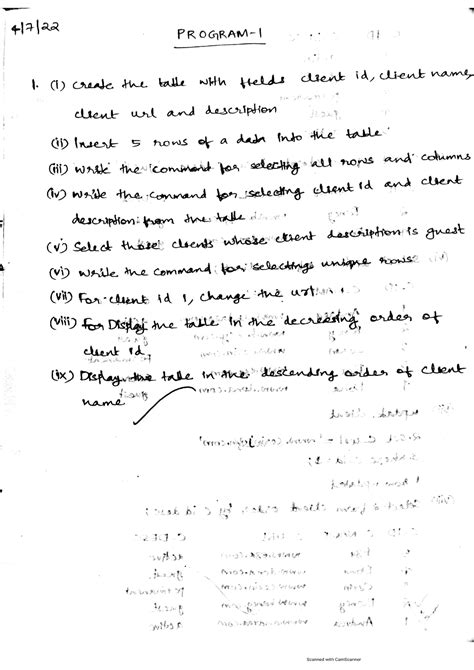 4/7/22
PROGRAM-1
1. (i) create the table with fields client id, client name,
client url and description
(ii) Insert 5 rows of a data into the table.
(iii) write the command for selecting all rows and columns
(iv) write the command for selecting client id and client
description from the table
(v) Select those clients whose client description is guest
(vi) write the command for selecting unique rows
(vii) For client id 1, change the url
(viii) for Display the table in the decreasing order of
client id,
(ix) Display the table in the descending order of client
name
Scanned with CamScanner